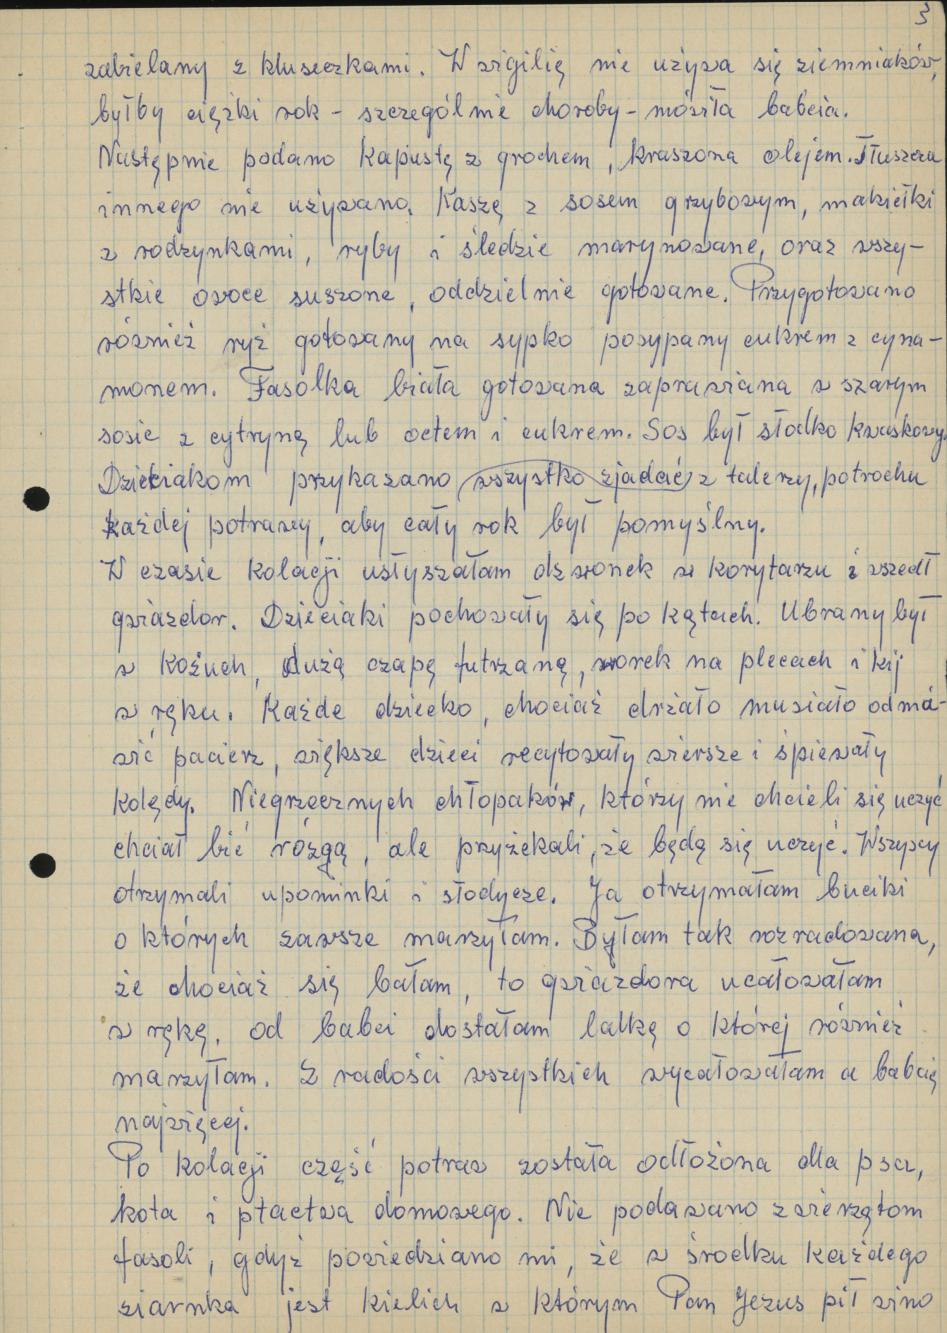 3
zabielany z kluseczkami. W wigilię nie używa się ziemniaków,
byłby ciężki rok - szczególnie choroby - mówiła babcia.
Następnie podano kapustę z grochem, kraszona olejem. Tłuszczu
innego nie używano. Kaszę z sosem grzybowym, makiełki
z rodzynkami, ryby i śledzie marynowane, oraz wszy-
stkie owoce suszone, oddzielnie gotowane. Przygotowano
również ryż gotowany na sypko posypany cukrem z cyna-
monem. Fasolka biała gotowana zaprawiana w szarym
sosie z cytryną lub octem i cukrem. Sos był słodko kwaskowy.
Dzieciakom przykazano wszystko zjadać z talerzy, potrochu
każdej potrawy, aby cały rok był pomyślny.
W czasie kolacji usłyszałam dzwonek w korytarzu i wszedł
gwiazdor. Dzieciaki pochowały się po kątach. Ubrany był
w kożuch, dużą czapę futrzaną, worek na plecach i kij
w ręku. Każde dziecko, chociaż drżało musiało odmó-
wić pacierz, większe dzieci recytowały wiersze i śpiewały
kolędy. Niegrzecznych chłopaków, którzy nie chcieli się uczyć
chciał bić rózgą, ale przyżekali, że będą się uczyć. Wszyscy
otrzymali upominki i słodycze. Ja otrzymałam buciki
o których zawsze marzyłam. Byłam tak rozradowana,
że chociaż się bałam, to gwiazdora ucałowałam
w rękę, od babci dostałam lalkę o której również
marzyłam. Z radości wszystkich wycałowałam a babcię
najwięcej.
Po kolacji część potraw została odłożona dla psa,
kota i ptactwa domowego. Nie podawano zwierzętom
fasoli, gdyż powiedziano mi, że w środku każdego
ziarnka jest kielich z którym Pan Jezus pił wino